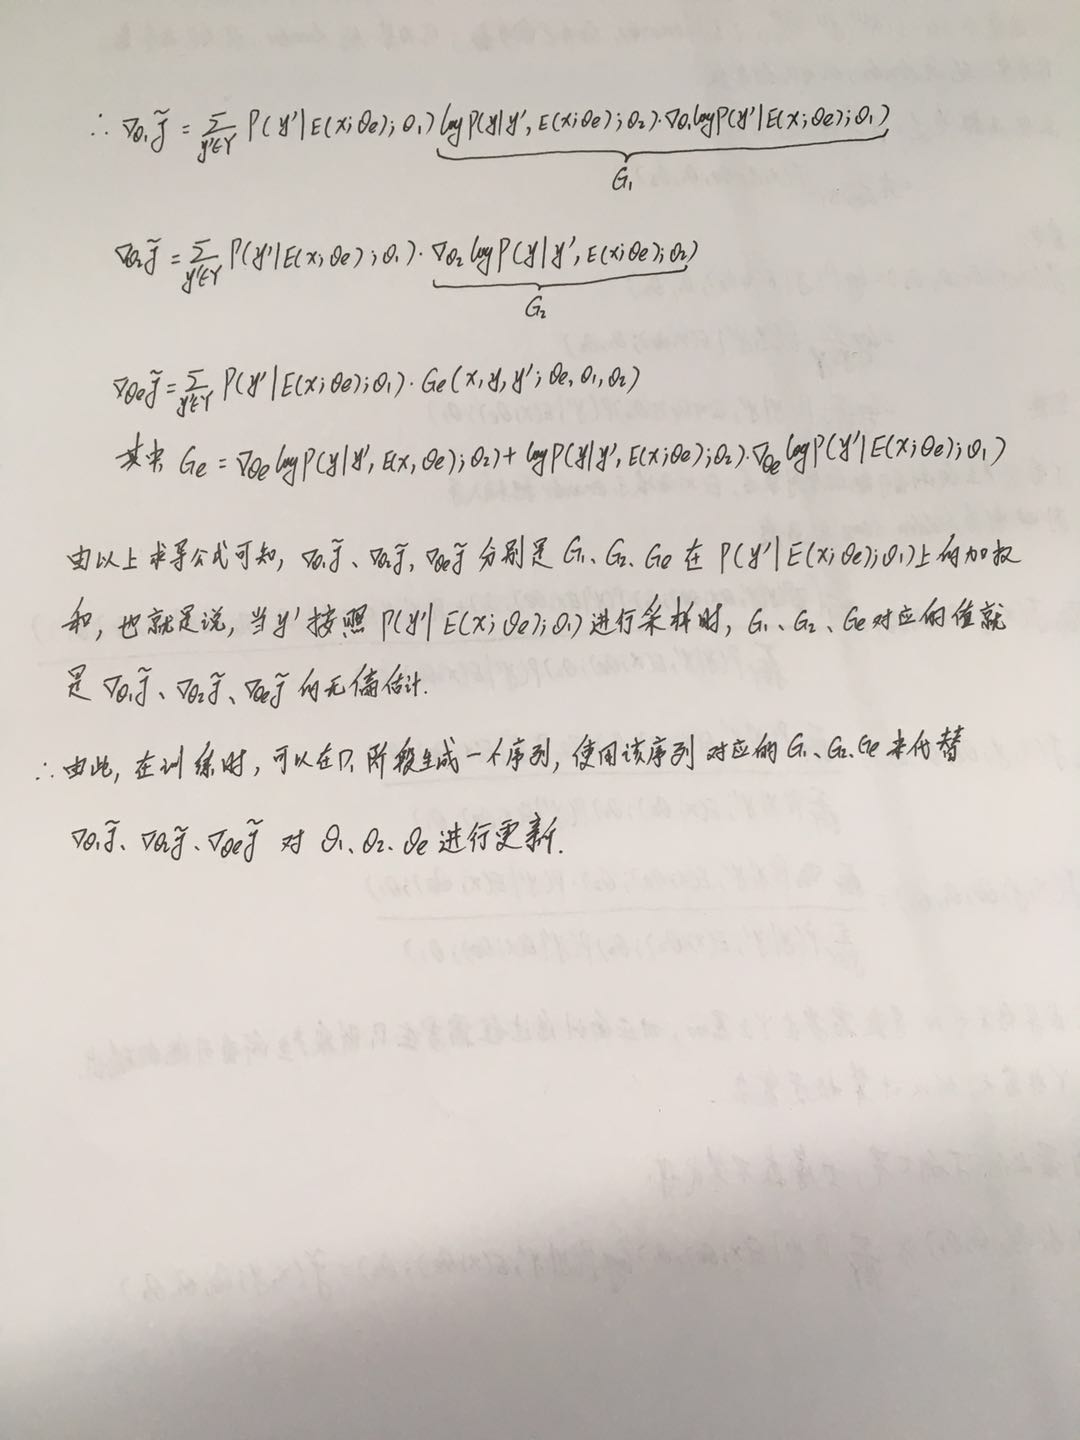 ∴ ∇θ₁J̃ = Σ_{y'∈Y} P(y'|E(x;θe);θ₁) log P(y|y',E(x;θe);θ₂)·∇θ₁ log P(y'|E(x;θe);θ₁)
G₁
∇θ₂J̃ = Σ_{y'∈Y} P(y'|E(x;θe);θ₁)·∇θ₂ log P(y|y',E(x;θe);θ₂)
G₂
∇θeJ̃ = Σ_{y'∈Y} P(y'|E(x;θe);θ₁)·Ge(x,y,y';θe,θ₁,θ₂)
其中 Ge = ∇θe log P(y|y',E(x,θe);θ₂) + log P(y|y',E(x;θe);θ₂)·∇θe log P(y'|E(x;θe);θ₁)
由以上求导公式可知, ∇θ₁J̃、∇θ₂J̃, ∇θeJ̃ 分别是 G₁、G₂、Ge 在 P(y'|E(x;θe);θ₁)上的加权
和, 也就是说, 当 y' 按照 P(y'|E(x;θe);θ₁) 进行采样时, G₁、G₂、Ge 对应的值就
是 ∇θ₁J̃、∇θ₂J̃、∇θeJ̃ 的无偏估计.
∴ 由此, 在训练时, 可以在D₁阶段生成一个序列, 使用该序列对应的 G₁、G₂、Ge 来代替
∇θ₁J̃、∇θ₂J̃、∇θeJ̃ 对 θ₁、θ₂、θe 进行更新.